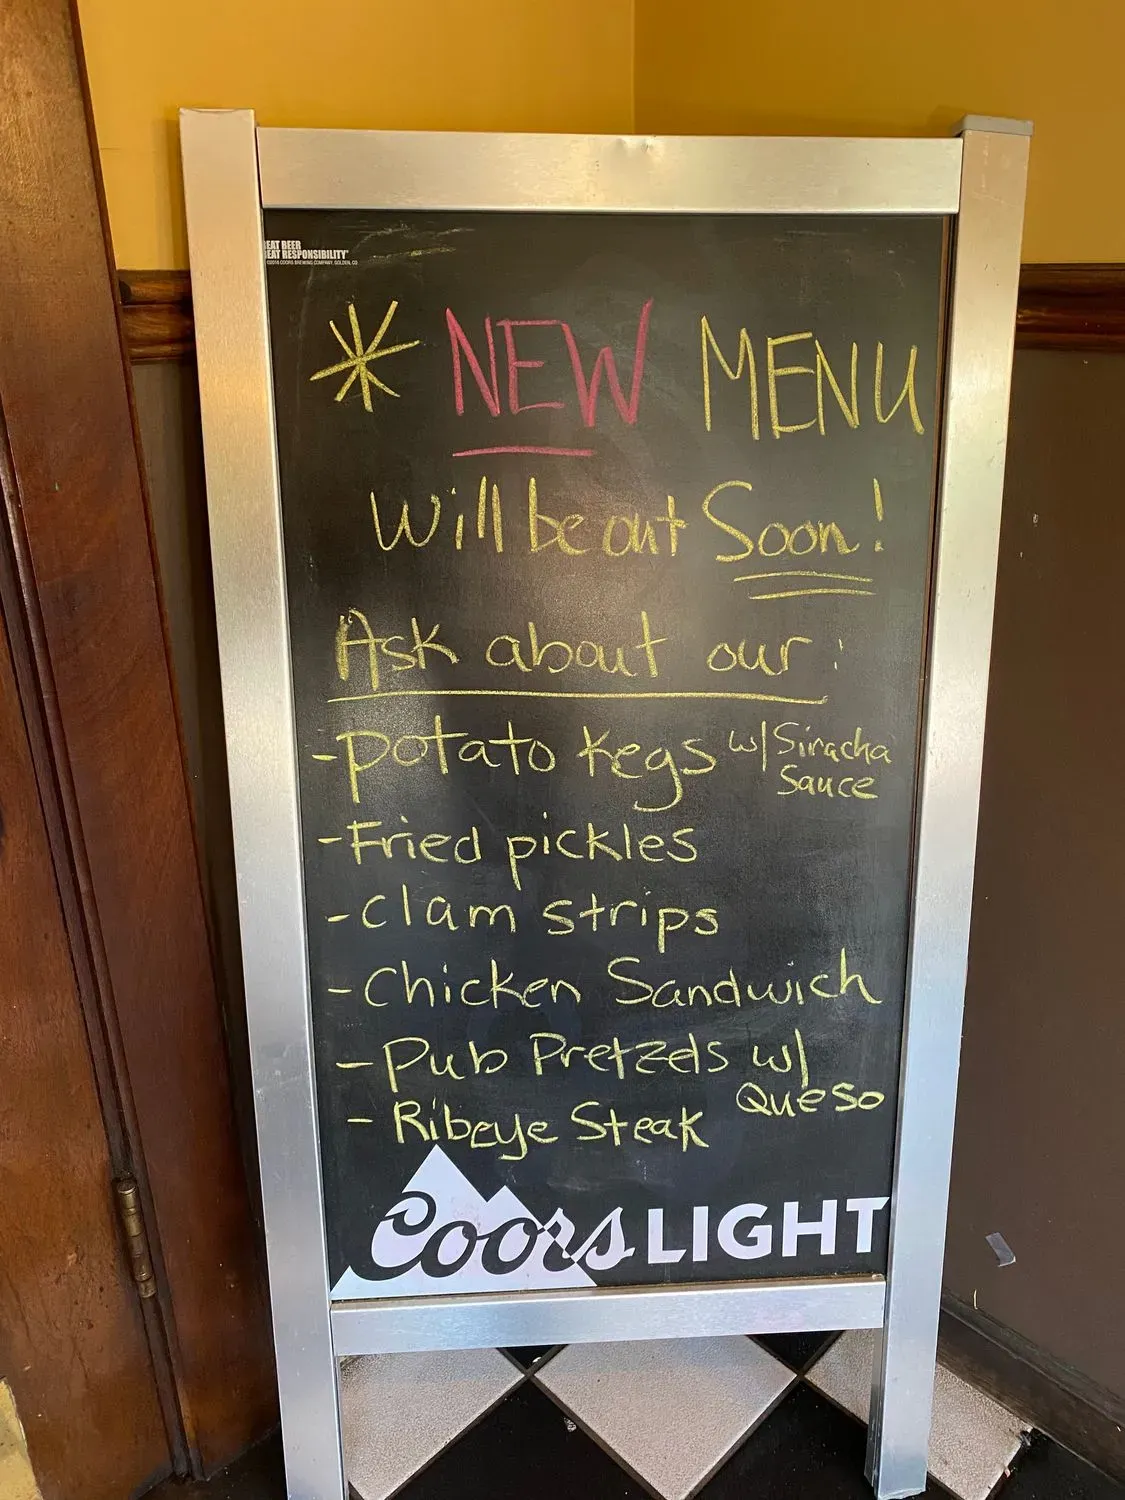 EAT BEER
EAT RESPONSIBILITY
* NEW MENU
Will be out Soon!
Ask about our:
- Potato Kegs w/ Siracha
Sauce
- Fried pickles
- Clam strips
- Chicken Sandwich
- Pub Pretzels w/
Queso
- Ribeye Steak
Coors LIGHT